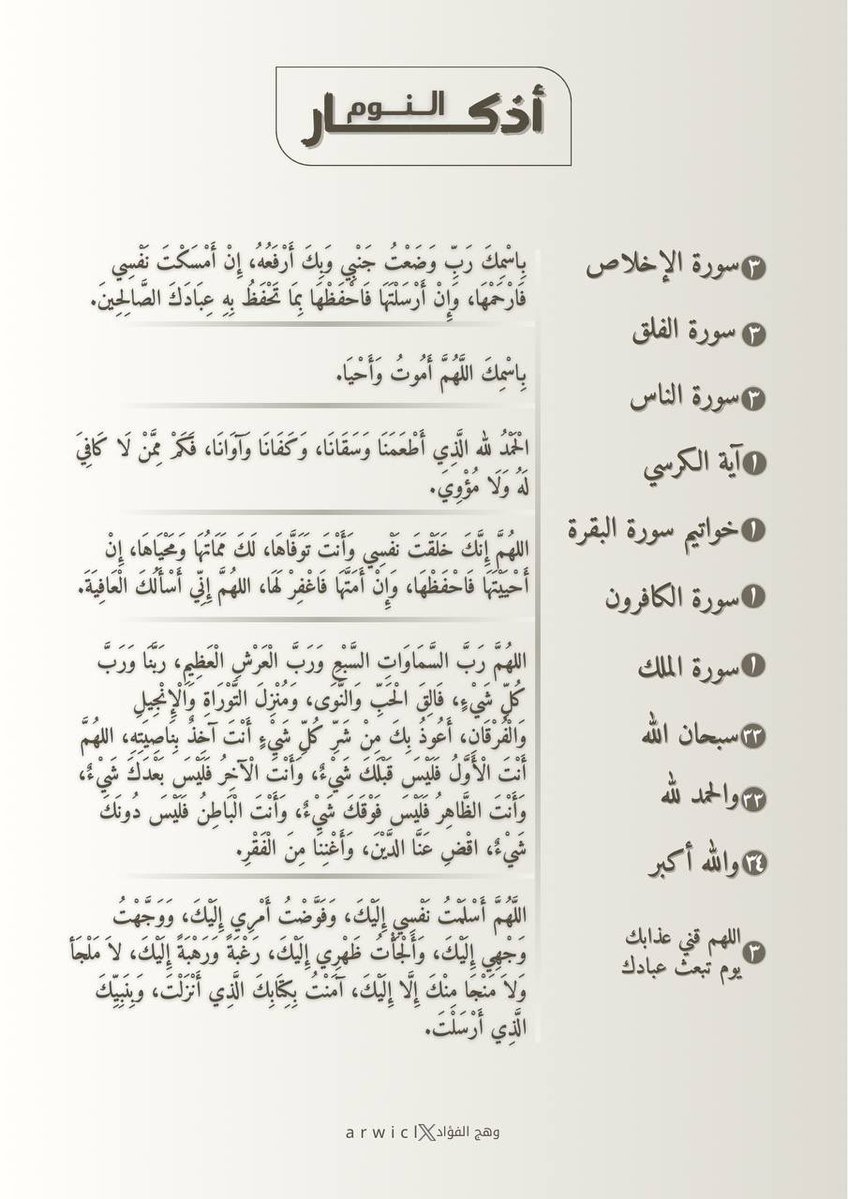 أذكار النوم
٣ سورة الإخلاص
٣ سورة الفلق
٣ سورة الناس
١ آية الكرسي
١ خواتيم سورة البقرة
١ سورة الكافرون
١ سورة الملك
٣٣ سبحان الله
٣٣ والحمد لله
٣٤ والله أكبر
٣ اللهم قني عذابك
يوم تبعث عبادك
بِاسْمِكَ رَبِّ وَضَعْتُ جَنْبِي وَبِكَ أَرْفَعُهُ، إِنْ أَمْسَكْتَ نَفْسِي
فَارْحَمْهَا، وَإِنْ أَرْسَلْتَهَا فَاحْفَظْهَا بِمَا تَحْفَظُ بِهِ عِبَادَكَ الصَّالِحِينَ.
بِاسْمِكَ اللَّهُمَّ أَمُوتُ وَأَحْيَا.
الْحَمْدُ لله الَّذِي أَطْعَمَنَا وَسَقَانَا، وَكَفَانَا وَآوَانَا، فَكَمْ مِمَّنْ لَا كَافِيَ
لَهُ وَلَا مُؤْوِيَ.
اللهُمَّ إِنَّكَ خَلَقْتَ نَفْسِي وَأَنْتَ تَوَفَّاهَا، لَكَ مَمَاتُهَا وَمَحْيَاهَا، إِنْ
أَحْيَيْتَهَا فَاحْفَظْهَا، وَإِنْ أَمَتَّهَا فَاغْفِرْ لَهَا، اللهُمَّ إِنِّي أَسْأَلُكَ الْعَافِيَةَ.
اللهُمَّ رَبَّ السَّمَاوَاتِ السَّبْعِ وَرَبَّ الْعَرْشِ الْعَظِيمِ، رَبَّنَا وَرَبَّ
كُلِّ شَيْءٍ، فَالِقَ الْحَبِّ وَالنَّوَى، وَمُنْزِلَ التَّوْرَاةِ وَالْإِنْجِيلِ
وَالْفُرْقَانِ، أَعُوذُ بِكَ مِنْ شَرِّ كُلِّ شَيْءٍ أَنْتَ آخِذٌ بِنَاصِيَتِهِ، اللهُمَّ
أَنْتَ الْأَوَّلُ فَلَيْسَ قَبْلَكَ شَيْءٌ، وَأَنْتَ الْآخِرُ فَلَيْسَ بَعْدَكَ شَيْءٌ،
وَأَنْتَ الظَّاهِرُ فَلَيْسَ فَوْقَكَ شَيْءٌ، وَأَنْتَ الْبَاطِنُ فَلَيْسَ دُونَكَ
شَيْءٌ، اقْضِ عَنَّا الدَّيْنَ، وَأَغْنِنَا مِنَ الْفَقْرِ.
اللَّهُمَّ أَسْلَمْتُ نَفْسِي إِلَيْكَ، وَفَوَّضْتُ أَمْرِي إِلَيْكَ، وَوَجَّهْتُ
وَجْهِي إِلَيْكَ، وَأَلْجَأْتُ ظَهْرِي إِلَيْكَ، رَغْبَةً وَرَهْبَةً إِلَيْكَ، لاَ مَلْجَأَ
وَلاَ مَنْجَا مِنْكَ إِلَّا إِلَيْكَ، آمَنْتُ بِكِتَابِكَ الَّذِي أَنْزَلْتَ، وَبِنَبِيِّكَ
الَّذِي أَرْسَلْتَ.
وهج الفؤاد X arwicl